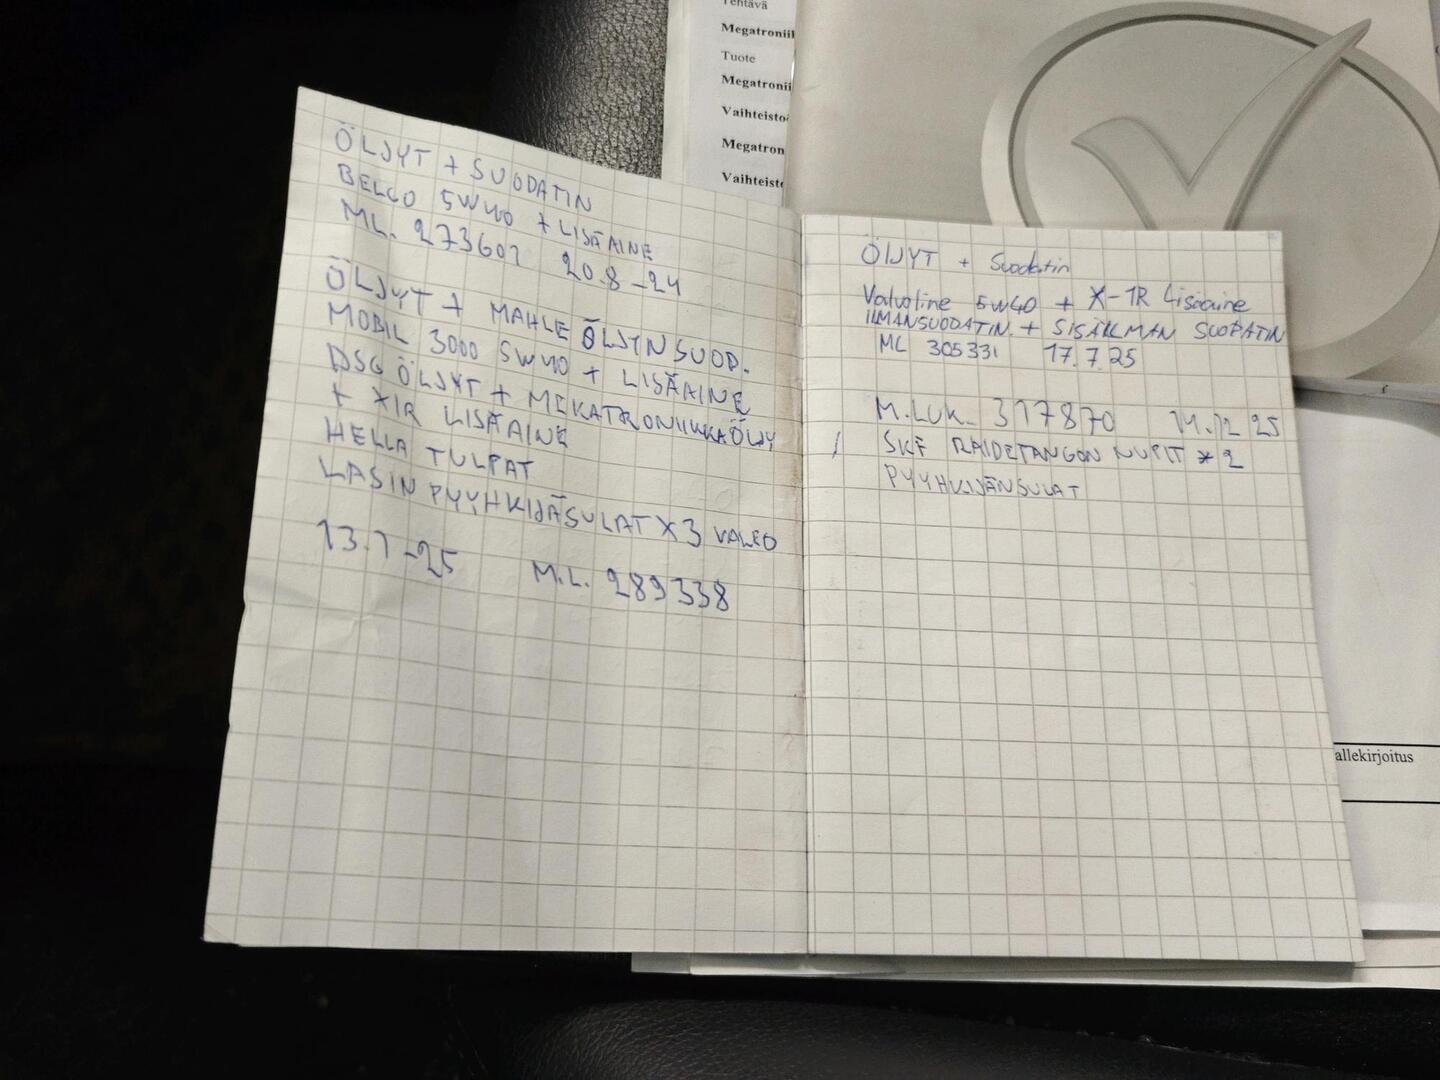 ÖLJYT + SUODATIN
BELCO 5W40 + LISÄAINE
ML. 273601 20.8-24
ÖLJYT + MAHLE ÖLJYNSUOD.
MOBIL 3000 5W40 + LISÄAINE
DSG ÖLJYT + MEKATRONIIKKAÖLJY
+ X1R LISÄAINE
HELLA TULPAT
LASIN PYYHKIJÄSULAT X3 VALEO
13.1-25 M.L. 289338
ÖLJYT + Suodatin
Valvoline 5W40 + X-1R Lisäaine
ILMANSUODATIN. + SISÄILMAN SUODATIN
ML 305331 17.7.25
M.LUK. 317870 14.12 25
SKF RAIDETANGON NUPIT * 2
PYYHKIJÄNSULAT
Tehtävä
Megatroniik
Tuote
Megatroni
Vaihteistoö
Megatron
Vaihteistö
allekirjoitus